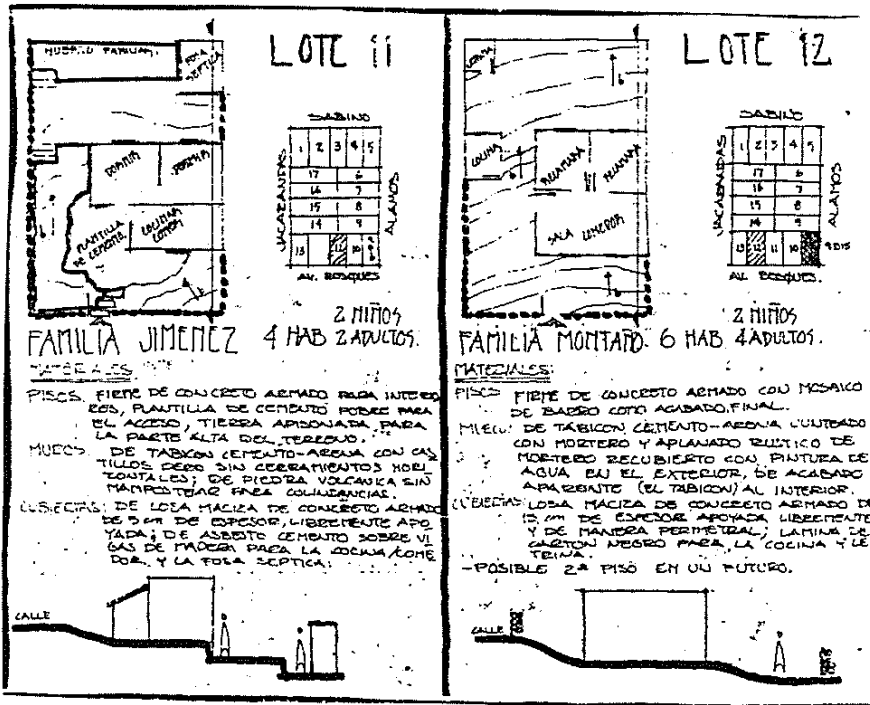 LOTE 11
HUERTO FAMILIAR
FOSA
SEPTICA
DORMIR
DORMIR
PLANTILLA
DE CEMENTO
COCINAR
COMER
SABINO
JACARANDAS
ALAMOS
1 2 3 4 5
17 6
16 7
15 8
14 9
13 10
AV. BOSQUES
2 NIÑOS
FAMILIA JIMENEZ 4 HAB 2 ADULTOS.
MATERIALES
PISOS FIRME DE CONCRETO ARMADO PARA INTERIO
RES, PLANTILLA DE CEMENTO POBRE PARA
EL ACCESO, TIERRA APISONADA PARA
LA PARTE ALTA DEL TERRENO.
MUROS: DE TABICON CEMENTO-ARENA CON CAS
TILLOS PERO SIN CERRAMIENTOS HORI
ZONTALES; DE PIEDRA VOLCANICA SIN
MAMPOSTEAR PARA COLINDANCIAS.
CUBIERTAS: DE LOZA MACIZA DE CONCRETO ARMADO
DE 5 cm DE ESPESOR, LIBREMENTE APO
YADA; DE ASBESTO CEMENTO SOBRE VI
GAS DE MADERA PARA LA COCINA/COME
DOR, Y LA FOSA SEPTICA.
CALLE
LOTE 12
LETRINA
COCINA
RECAMARA
RECAMARA
SALA COMEDOR
SABINO
JACARANDAS
ALAMOS
1 2 3 4 5
17 6
16 7
15 8
14 9
13 12 11 10
AV. BOSQUES
2 NIÑOS
FAMILIA MONTAÑO. 6 HAB 4 ADULTOS.
MATERIALES:
PISOS FIRME DE CONCRETO ARMADO CON MOSAICO
DE BARRO COMO ACABADO FINAL.
MUROS: DE TABICON CEMENTO-ARENA CUNTEADO
CON MORTERO Y APLANADO RUSTICO DE
MORTERO RECUBIERTO CON PINTURA DE
AGUA EN EL EXTERIOR, DE ACABADO
APARENTE (EL TABICON) AL INTERIOR.
CUBIERTAS: LOSA MACIZA DE CONCRETO ARMADO DE
15 cm DE ESPESOR APOYADA LIBREMENTE
Y DE MANERA PERIMETRAL; LAMINA DE
CARTON NEGRO PARA LA COCINA Y LE
TRINA.
- POSIBLE 2º PISO EN UN FUTURO.
CALLE